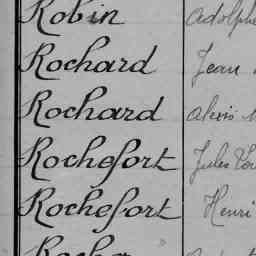 Robin Adolphe
Rochard Jean
Rochard Alexis
Rochefort Jules
Rochefort Henri